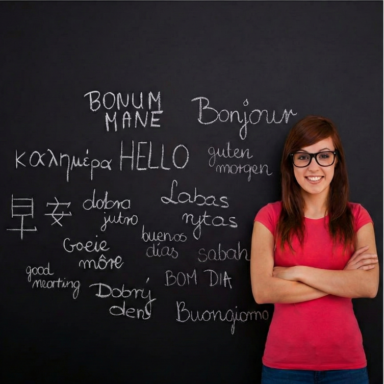 BONUM
MANE
Bonjour
καλημέρα
HELLO
guten
morgen
早安
dobro
jutro
Labas
rytas
Goeie
môre
buenos
dias
sabah
good
Dobrý
den
BOM DIA
Buongiorno